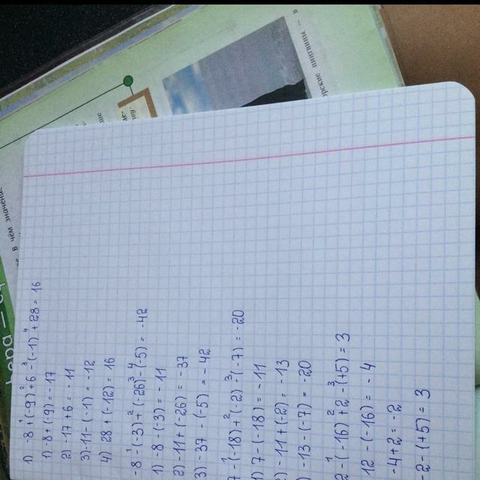 1) -8+(-9)+6-(-1)+28=16
1) -8+(-9)=-17
2) -17+6=-11
3) -11-(-1)=-12
4) 28+(-12)=16
-8-(-3)+(-26)-(-5)=-42
1) -8-(-3)=-11
2) -11+(-26)=-37
3) -37-(-5)=-42
7-(-18)+(-2)-(-7)=-20
1) 7-(-18)=-11
2) -11+(-2)=-13
) -13-(-7)=-20
2-(-16)+2-(+5)=3
12-(-16)=-4
-4+2=-2
-2-(+5)=3
в чём